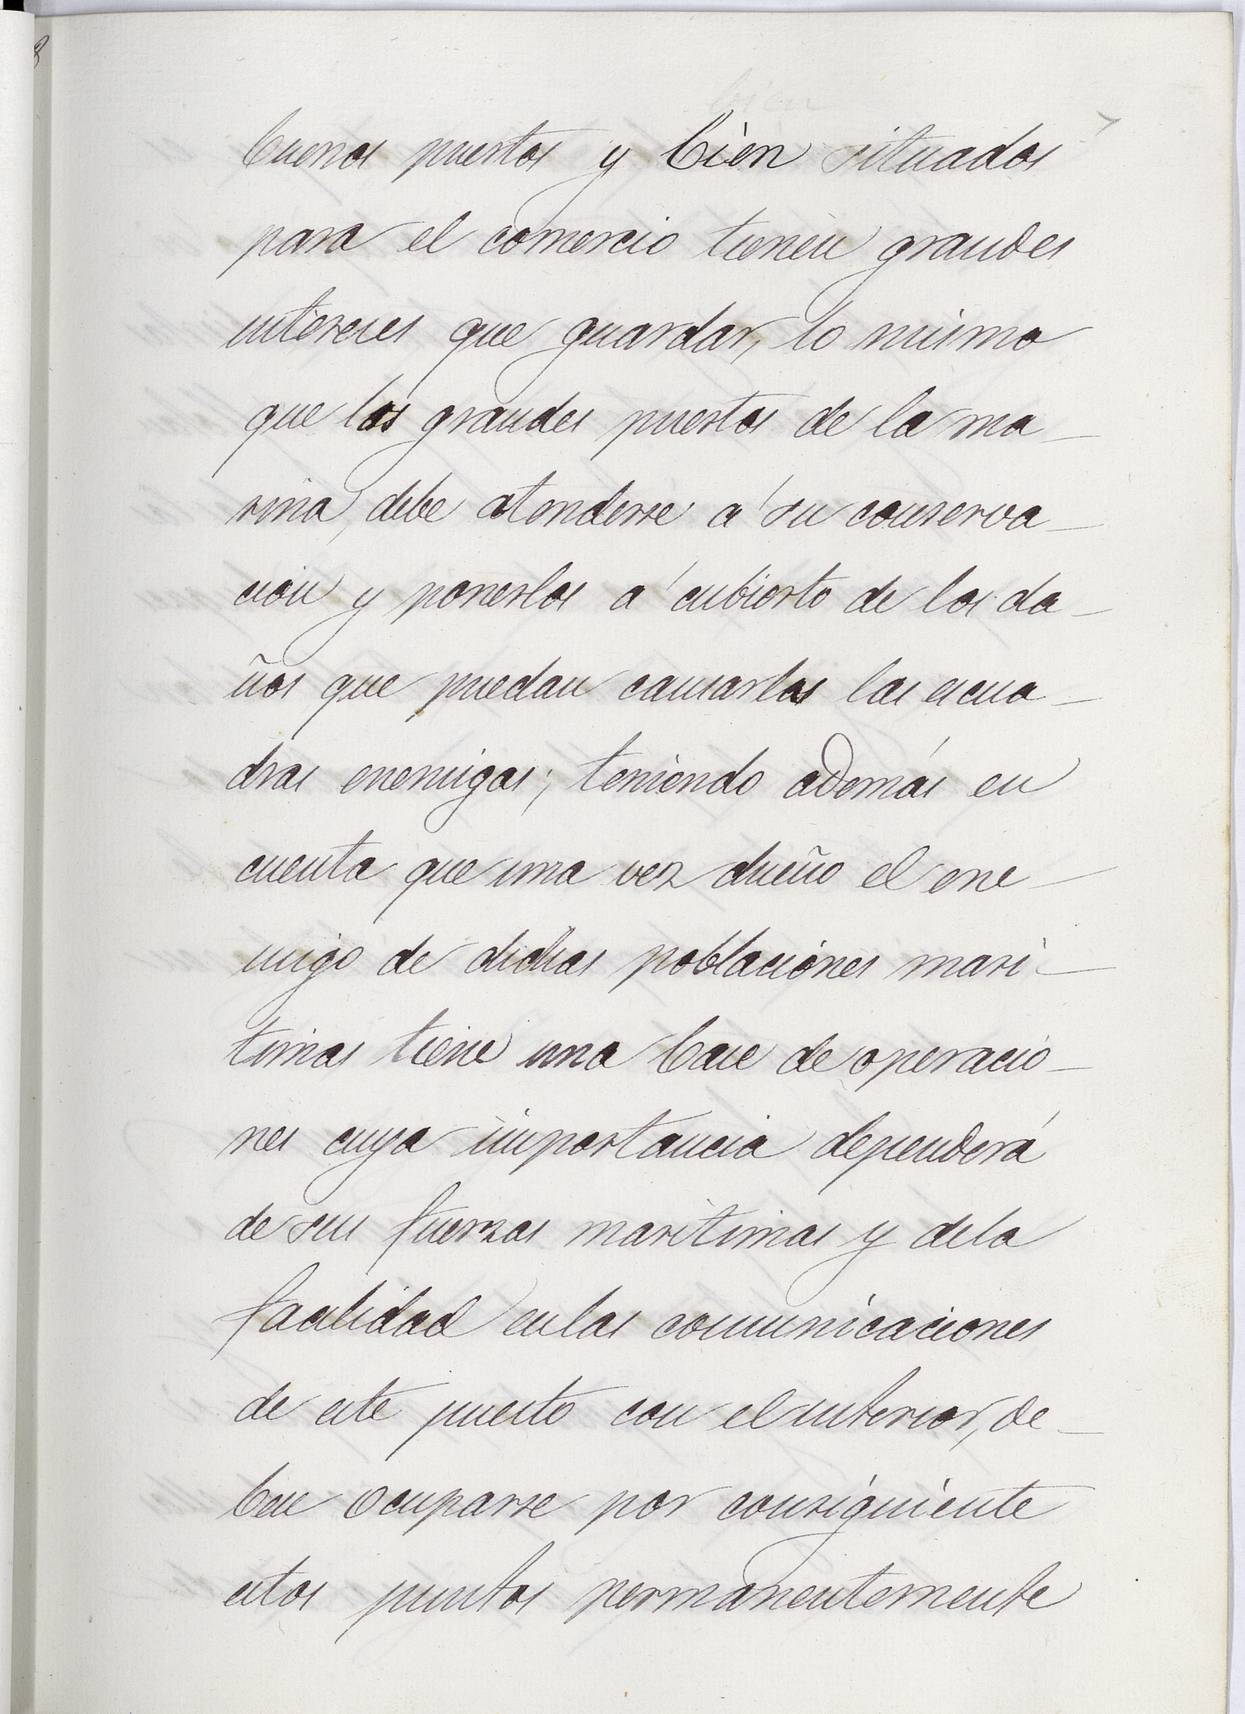 buenos puertos y bien situados
para el comercio tienen grandes
intereses que guardar, lo mismo
que los grandes puertos de la ma_
rina, debe atenderse á su conserva_
cion y ponerlos á cubierto de los da_
ños que puedan causarlos las escua_
dras enemigas; teniendo además en
cuenta que una vez dueño el ene_
migo de dichas poblaciones mari_
timas tiene una base de operacio_
nes cuya importancia dependerá
de sus fuerzas maritimas y de la
facilidad en las comunicaciones
de este puesto con el interior, de_
ben ocuparse por consiguiente
estos puntos permanentemente